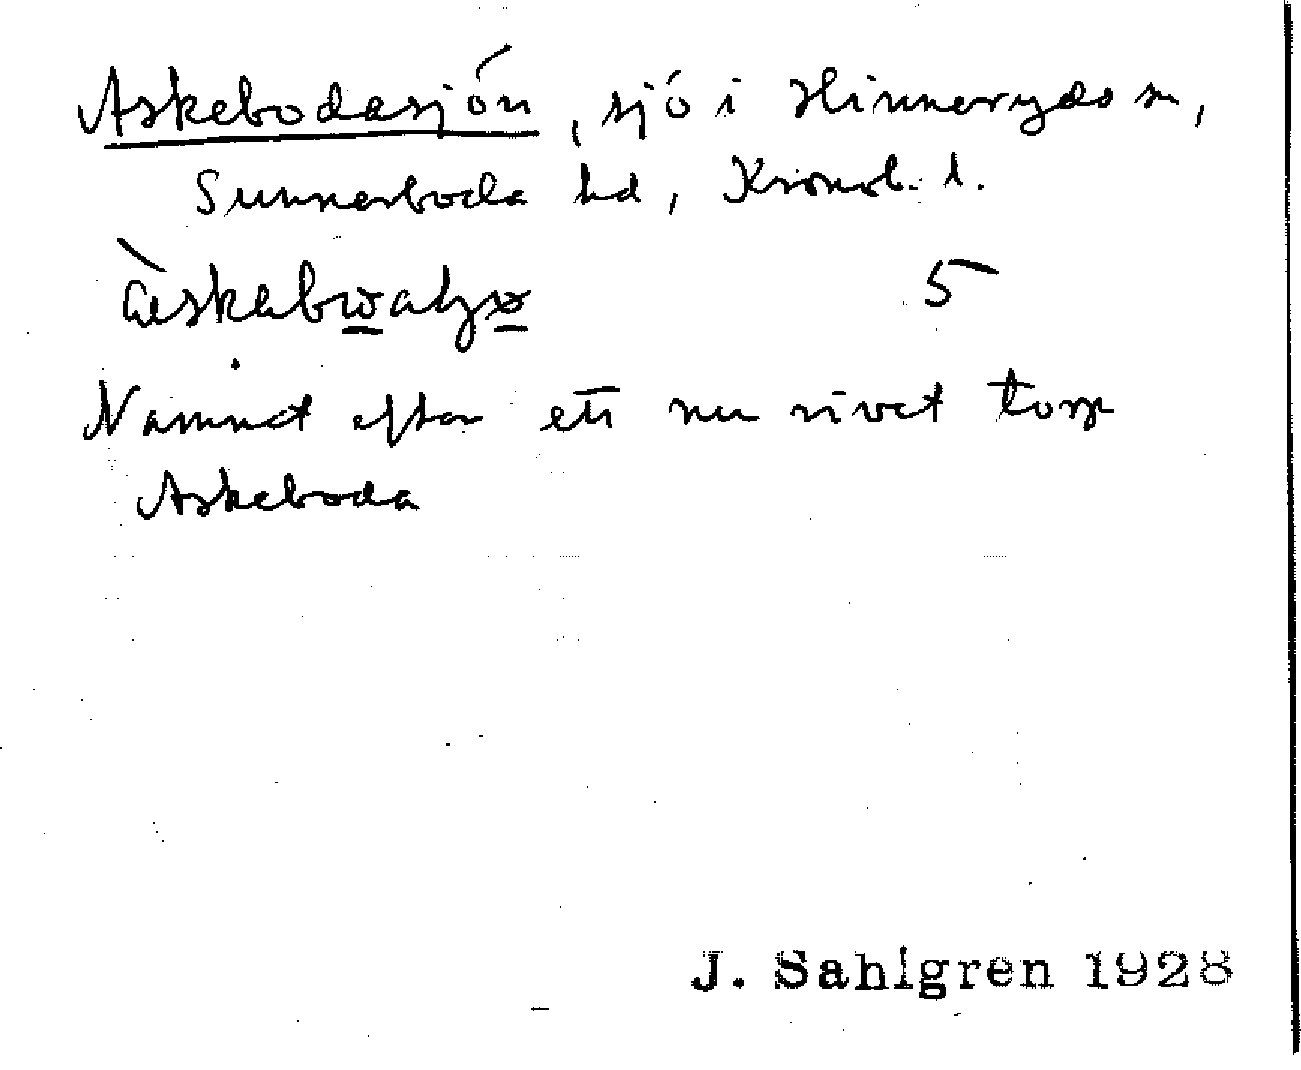 Askebodasjön, sjö i Hinneryds sn,
Sunnerbo hd, Kronob. l.
5
Namnet efter ett nu rivet torp
Askeboda
J. Sahlgren 1928